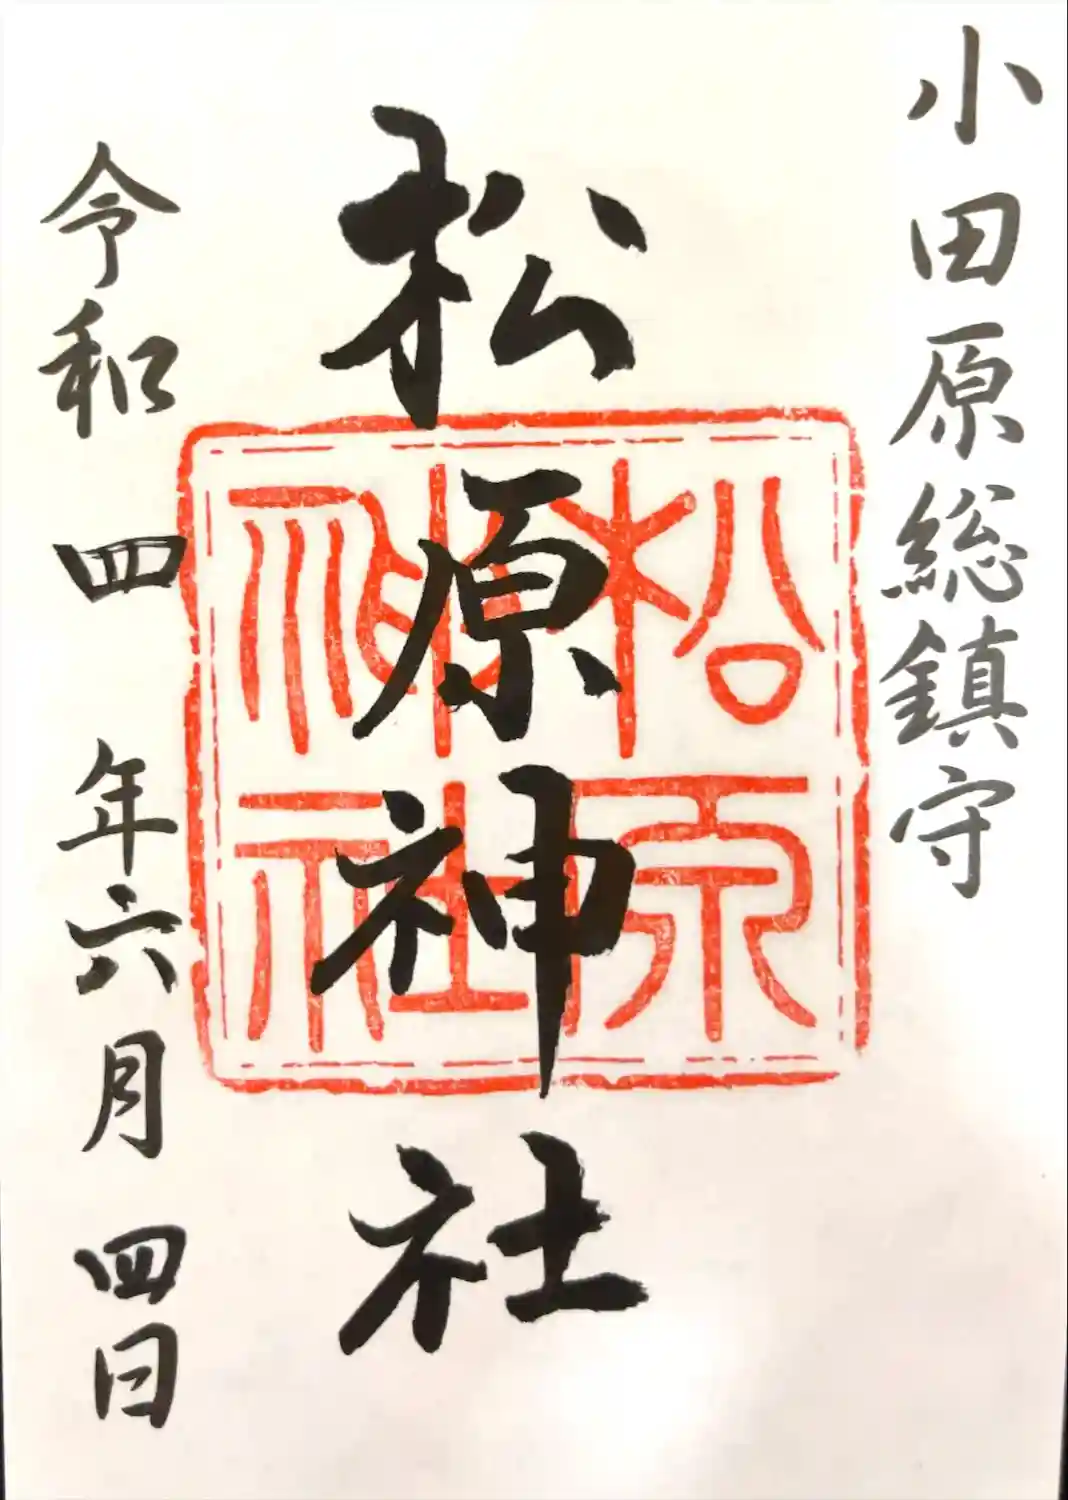 小田原総鎮守
松原神社
松原神社
令和四年六月四日